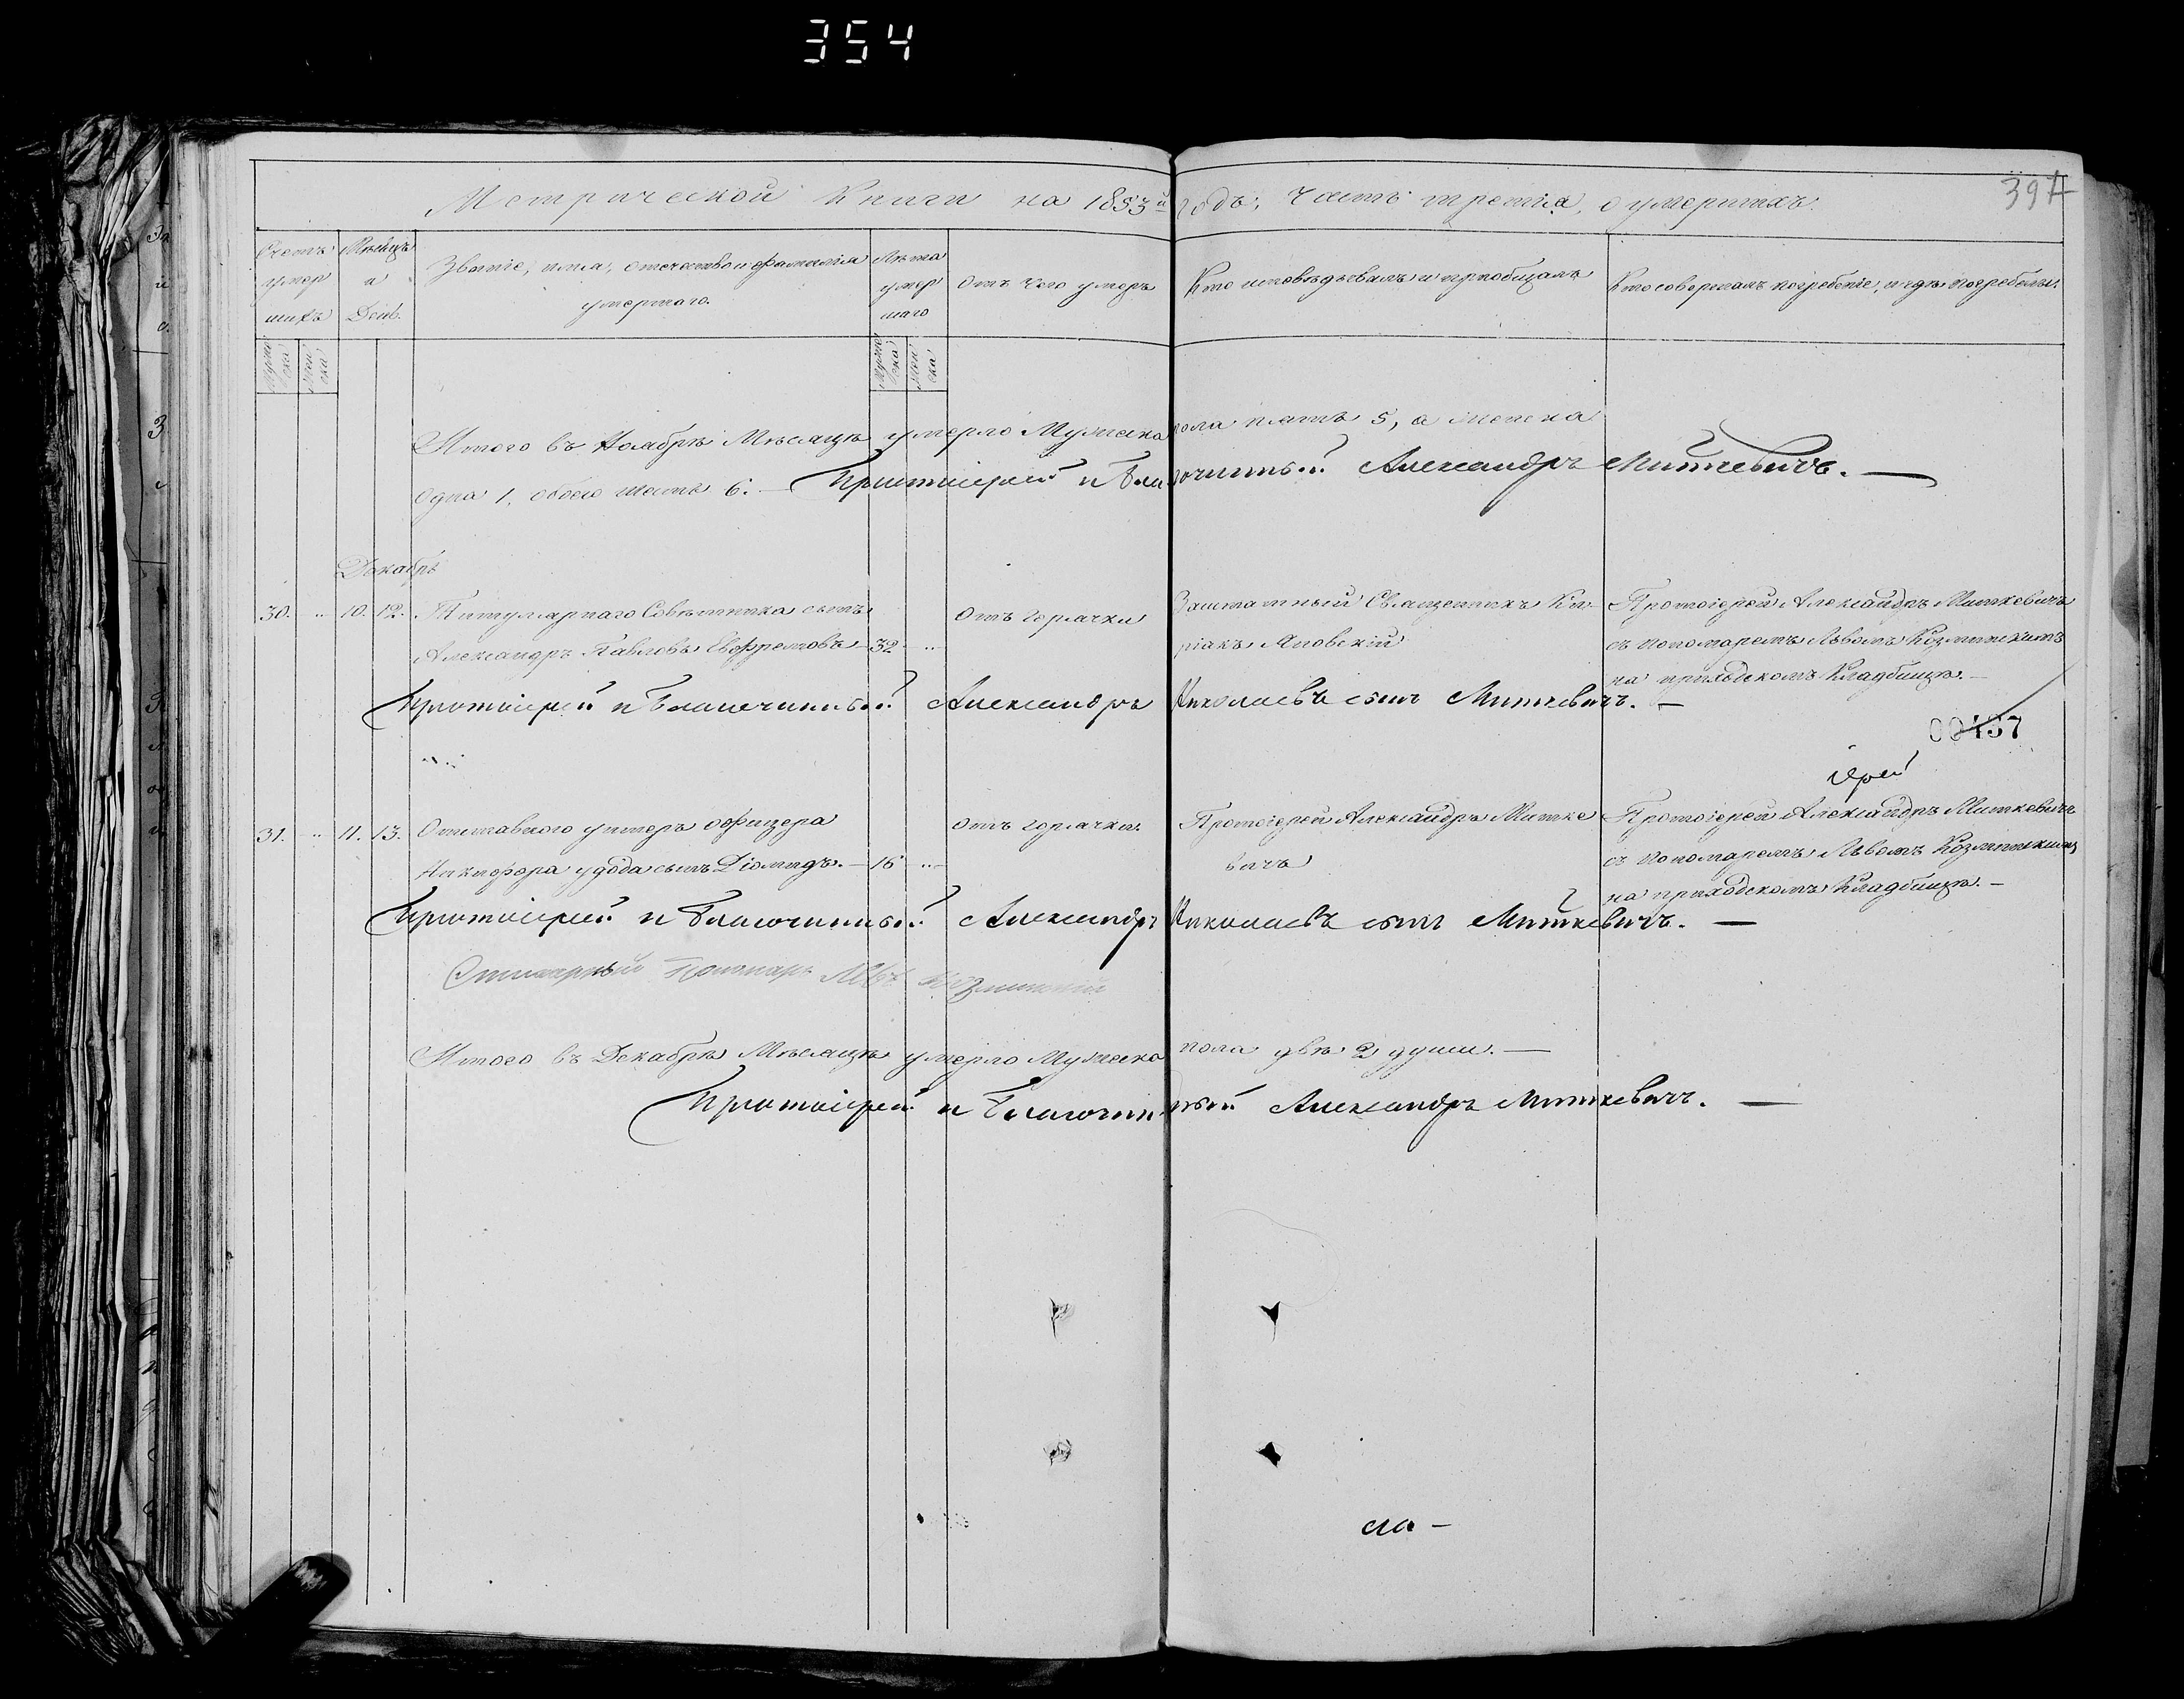 354
397
Метрической Книги на 1853й годъ, Часть третія, о умершихъ.
Счетъ умершихъ
Мѣсяцъ и День.
Званіе, имя, отечество и фамилія умершаго.
Лѣта умершаго
Отъ чего умеръ
Кто исповѣдывалъ и пріобщалъ
Кто совершалъ погребеніе, и гдѣ погребены.
Мужеска
Женска
Мужеска
Женска
Итого въ Ноябрѣ Мѣсяцѣ умерло Мужеска пола пять 5, а женска
одна 1, обоего шесть 6. — Протоіерей и Благочинный Александръ Миткевичъ. —
Декабрь
30. .. 10. 12. Титулярнаго Совѣтника сынъ Александръ Павловъ Евфремовъ — 32 ..
отъ горячки
Заштатный Священникъ Киріакъ Яновскій
Протоіерей Александръ Миткевичъ
съ пономаремъ Львомъ Козминскимъ
на приходскомъ Кладбищѣ. —
Протоіерей и Благочинный Александръ Николаевъ сынъ Миткевичъ. —
00437
ерей
31. .. 11. 13. Отставного унтеръ офицера
Никифора Удода сынъ Діомидъ. — 16 ..
отъ горячки.
Протоіерей Александръ Миткевичъ
Протоіерей Александръ Миткевичъ
съ Пономаремъ Львомъ Козминскимъ
на приходскомъ Кладбищѣ. —
Протоіерей и Благочинный Александръ Николаевъ сынъ Миткевичъ. —
Пономарь Левъ Козминскій
Итого въ Декабрѣ Мѣсяцѣ умерло Мужеска пола двѣ 2 души. —
Протоіерей и Благочинный Александръ Миткевичъ. —